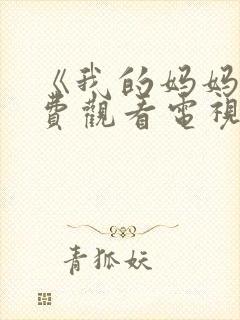 《我的妈妈
费觀看電視
青狐妖